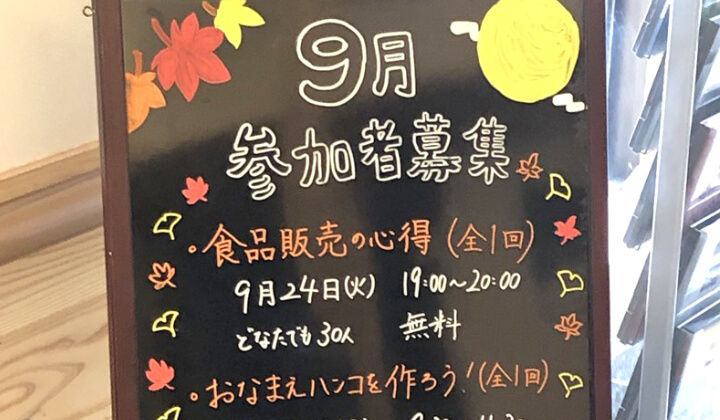 9月
参加者募集
・食品販売の心得(全1回)
9月24日(火) 19:00〜20:00
どなたでも30人 無料
・おなまえハンコを作ろう!(全1回)